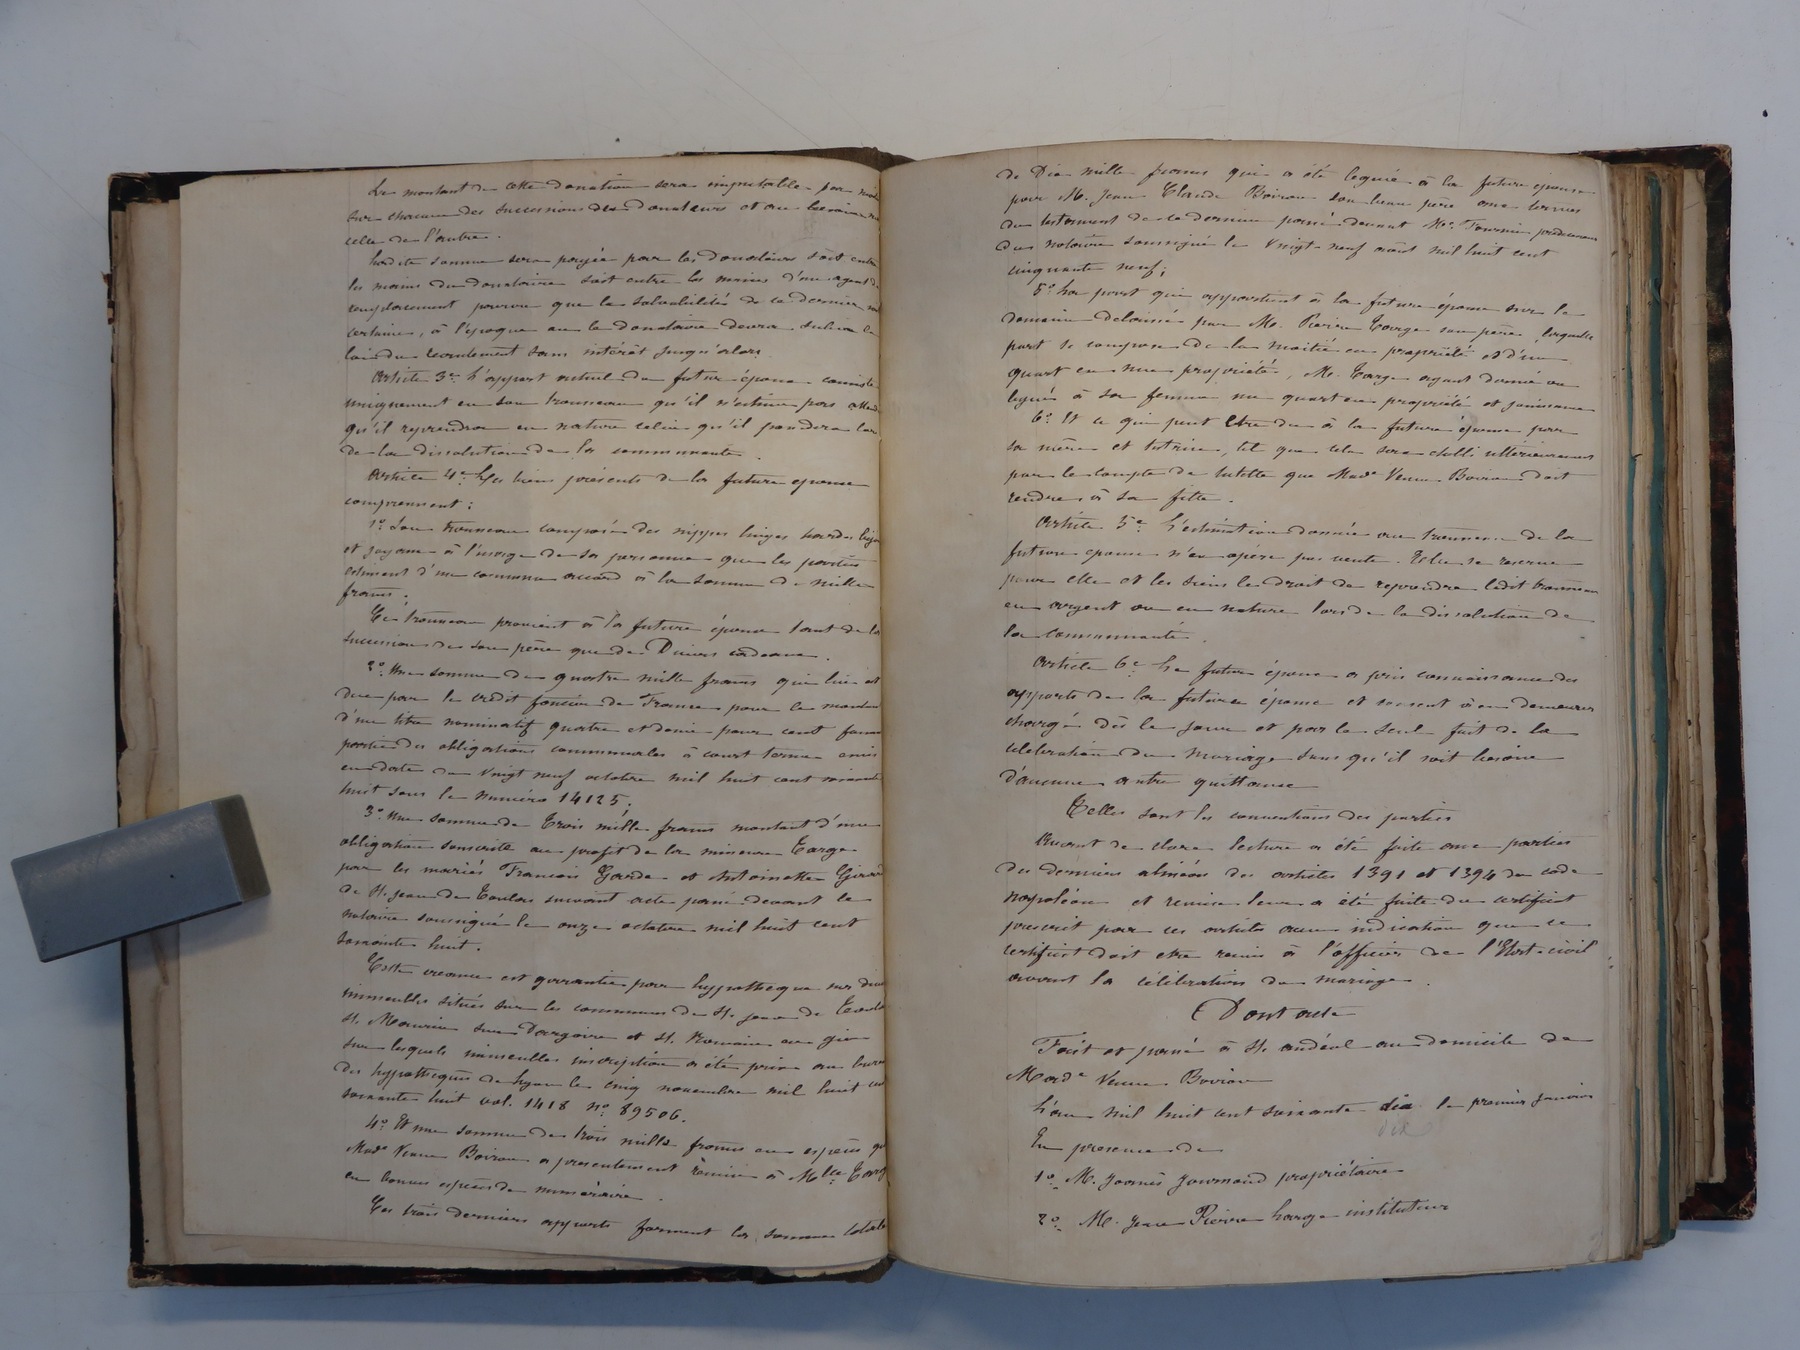 Le montant de cette donation sera imputable par moitié
sur chacune des successions des donateurs et au besoin sur
celle de l'autre.
Ladite somme sera payée par les donateurs soit entre
les mains du donataire soit entre les mains d'un agent de
remplacement pourvu que la solvabilité de ce dernier soit
certaine, à l'époque où le donataire devra subir la
loi du recrutement sans intérêt jusqu'alors.
Article 3e L'apport actuel du futur époux consiste
uniquement en son trousseau qu'il n'estime pas attendu
qu'il reprendra en nature celui qu'il possèdera lors
de la dissolution de la communauté.
Article 4e Les biens présents de la future épouse
comprennent :
1o Son trousseau composé des nippes linges hardes bijoux
et joyaux à l'usage de sa personne que les parties
estiment d'un commun accord à la somme de mille
francs.
Ce trousseau provient à la future épouse tant de la
succession de son père que de Divers cadeaux.
2o Une somme de quatre mille francs qui lui est
due par le crédit foncier de France pour le montant
d'un titre nominatif quatre et demi pour cent faisant
partie des obligations communales à court terme émis
en date du vingt neuf octobre mil huit cent soixante
huit sous le numéro 14125;
3o Une somme de Trois mille francs montant d'une
obligation souscrite au profit de la mineure Targe
par les mariés François Garde et Antoinette Girard
de St Jean de Toulas suivant acte passé devant le
notaire soussigné le onze octobre mil huit cent
soixante huit.
Cette créance est garantie par hypothèque sur divers
immeubles situés sur les communes de St Jean de Toulas
St Maurice sur Dargoire et St Romain en gier
sur lesquels immeubles inscription a été prise au bureau
des hypothèques de Lyon le cinq novembre mil huit cent
soixante huit vol. 1418 no 89506.
4o Et une somme de trois mille francs en espèces que
Made Veuve Boiron a présentement remise à Mlle Targe
en bonnes espèces de numéraire.
Les trois derniers apports forment la somme totale
de Dix mille francs qui a été léguée à la future épouse
par M. Jean Claude Boiron son beau père aux termes
du testament de ce dernier passé devant Me Fournier prédécesseur
du notaire soussigné le vingt-neuf août mil huit cent
cinquante neuf;
5o La part qui appartient à la future épouse sur le
domaine délaissé par M. Pierre Targe son père, laquelle
part se compose de la moitié en propriété et d'un
quart en nue propriété, M. Targe ayant donné ou
légué à sa femme un quart en propriété et jouissance
6o Et ce qui peut être du à la future épouse par
sa mère et tutrice, tel que cela sera établi ultérieurement
par le compte de tutelle que Made Veuve Boiron doit
rendre à sa fille.
Article 5e L'estimation donnée au trousseau de la
future épouse n'en opère pas vente. Elle se réserve
pour elle et les siens le droit de reprendre ledit trousseau
en argent ou en nature lors de la dissolution de
la communauté.
Article 6e Le futur époux a pris connaissance des
apports de la future épouse et consent à en demeurer
chargé dès le jour et par le seul fait de la
célébration du mariage sans qu'il soit besoin
d'aucune autre quittance
Telles sont les conventions des parties
Avant de clore lecture a été faite aux parties
des derniers alinéas des articles 1391 et 1394 du code
napoléon et remise leur a été faite du certificat
prescrit par ces articles avec indication que ce
certificat doit être remis à l'officier de l'Etat-civil
avant la célébration du mariage.
Dont acte
Fait et passé à St andéol au domicile de
Made Veuve Boiron
L'an mil huit cent soixante dix le premier janvier
dix
En presence de
1o M. Joanès Journoud propriétaire
2o M. Jean Pierre Large instituteur